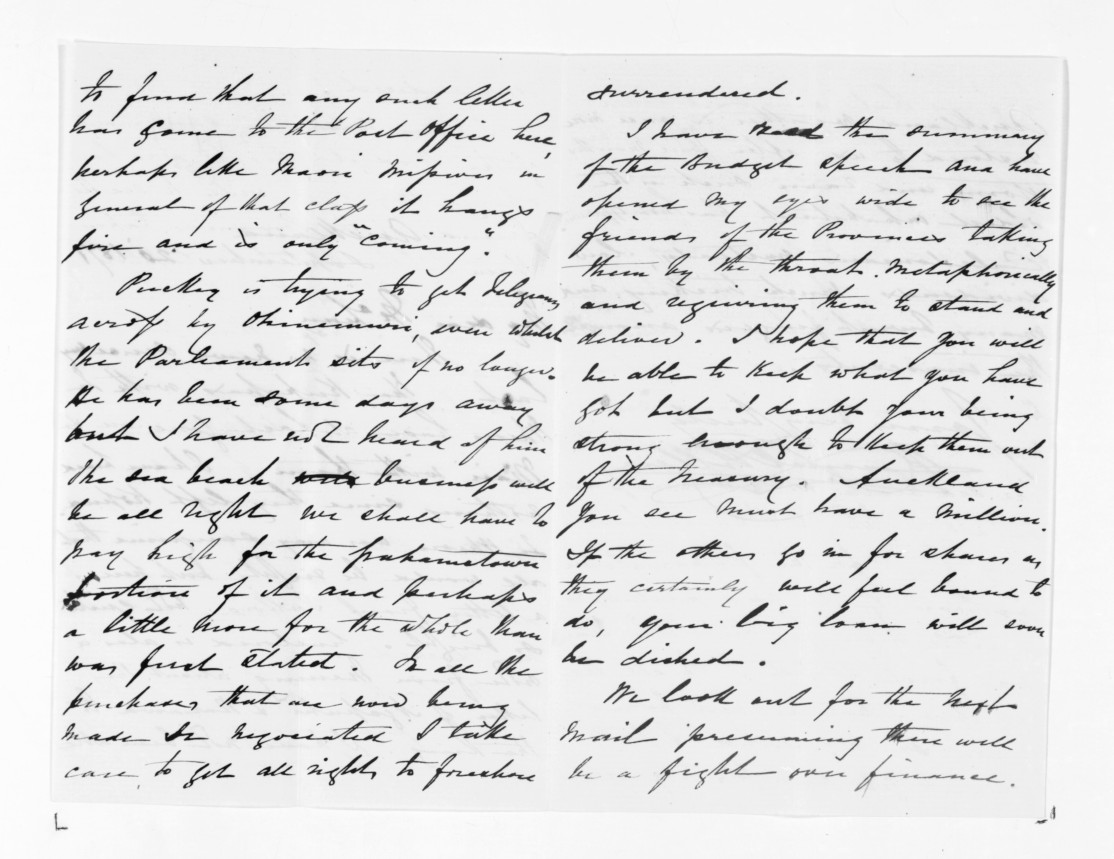 to find that any such letter
has gone to the Post Office here,
perhaps like Maori missives in
general of that class it hangs
fire and is only "coming".
Puckey is trying to get telegrams
across by Ohinemuri, even whilst
the Parliament sits if no longer.
He has been some days away
but I have not heard of him
The sea beach business will
be all right we shall have to
pay high for the Grahamstown
portion of it and perhaps
a little more for the whole than
was first stated. In all the
purchases that are now being
made or negociated I take
care to get all rights to foreshore
surrendered.
I have read the summary
of the Budget speech and have
opened my eyes wide to see the
friends of the Provinces taking
them by the throat metaphorically
and requiring them to stand and
deliver. I hope that you will
be able to keep what you have
got but I doubt your being
strong enough to keep them out
of the Treasury. Auckland
you see must have a million.
If the others go in for shares as
they certainly will feel bound to
do, your big loan will soon
be dished.
We look out for the next
mail presuming there will
be a fight over finance.